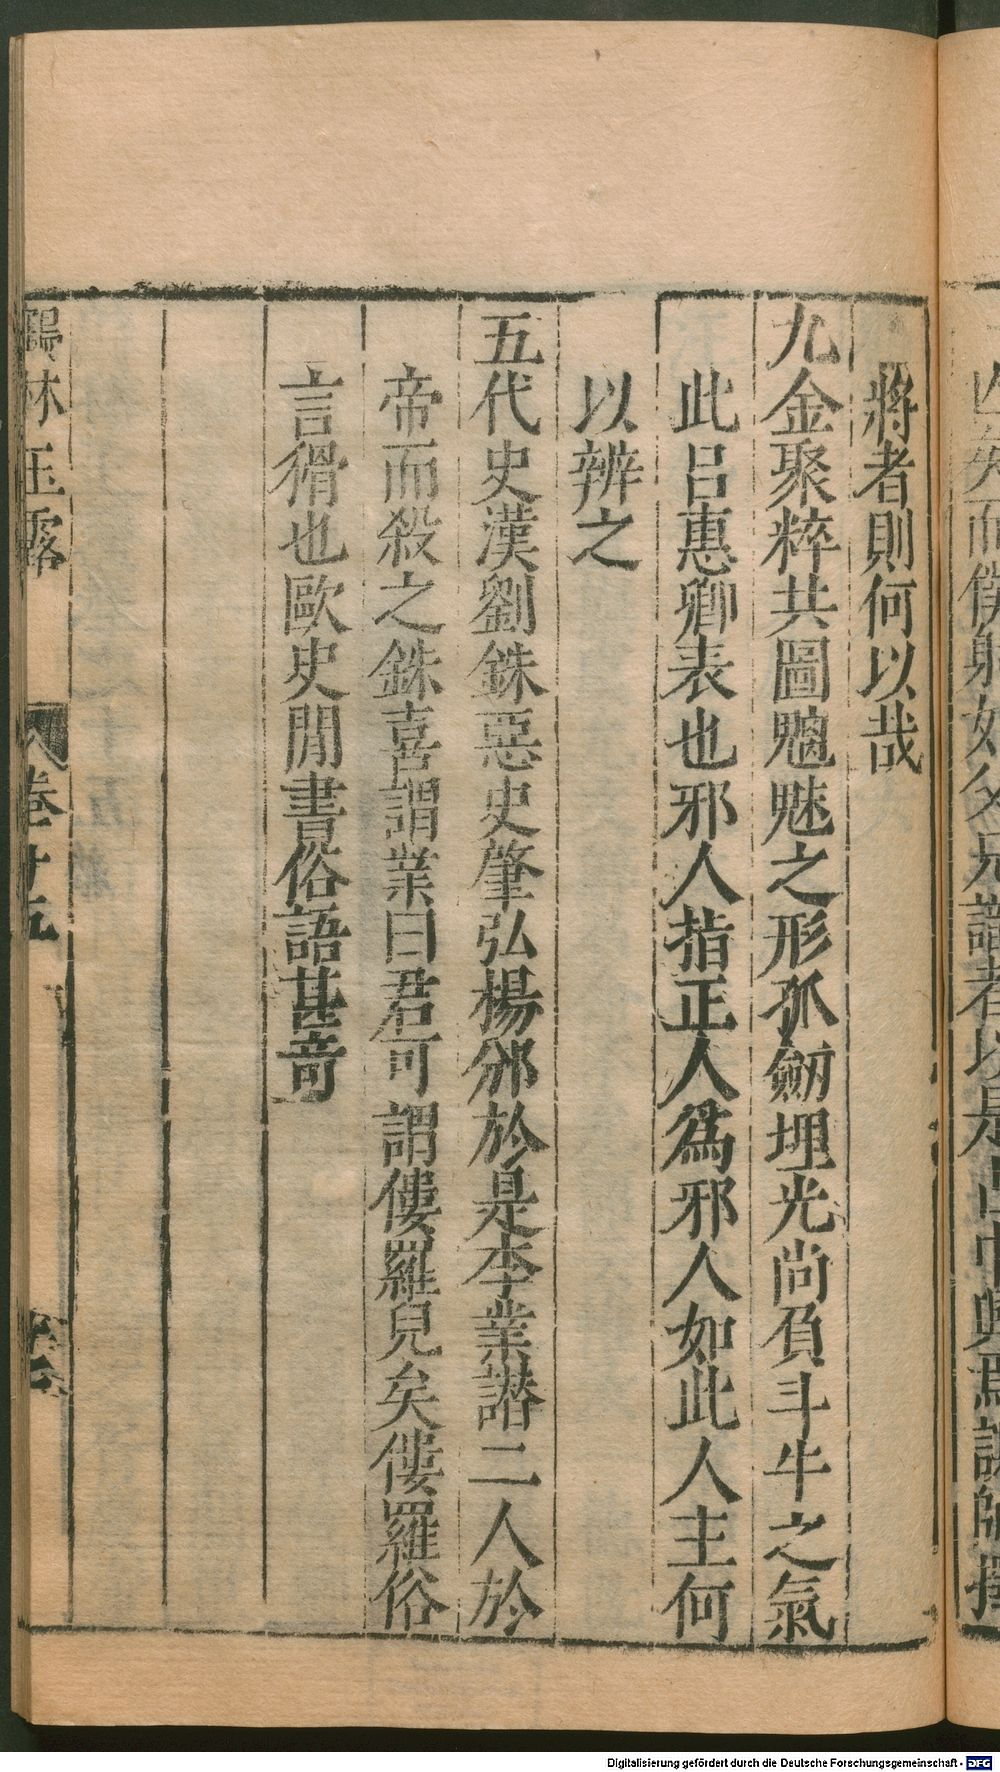 將者則何以哉
九金聚粹共圖魍魅之形孤劒埋光尚負斗牛之氣
此吕惠卿表也邪人指正人爲邪人如此人主何
以辨之
五代史漢劉銖惡史肇弘楊邠於是李業譖二人於
帝而殺之銖喜謂業曰君可謂僂羅兒矣僂羅俗
言猾也歐史閒書俗語甚奇
林玉露
卷十五
Digitalisierung gefördert durch die Deutsche Forschungsgemeinschaft - DFG